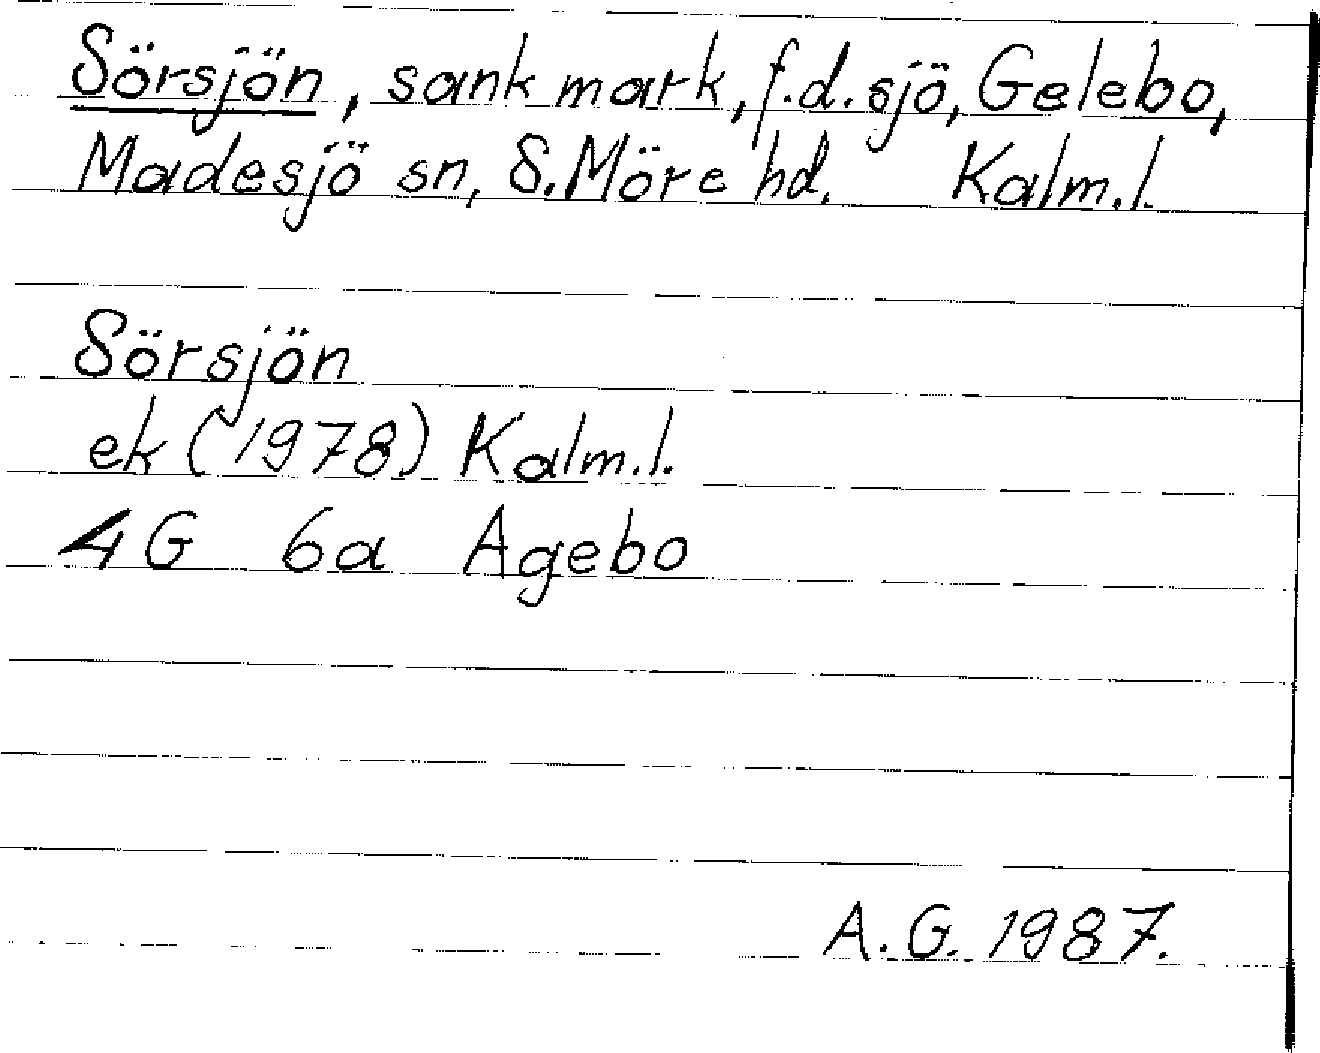 Sörsjön, sank mark, f.d. sjö, Gelebo,
Madesjö sn, S. Möre hd. Kalm.l.
Sörsjön
ek (1978) Kalm.l.
4G 6a Agebo
A.G. 1987.